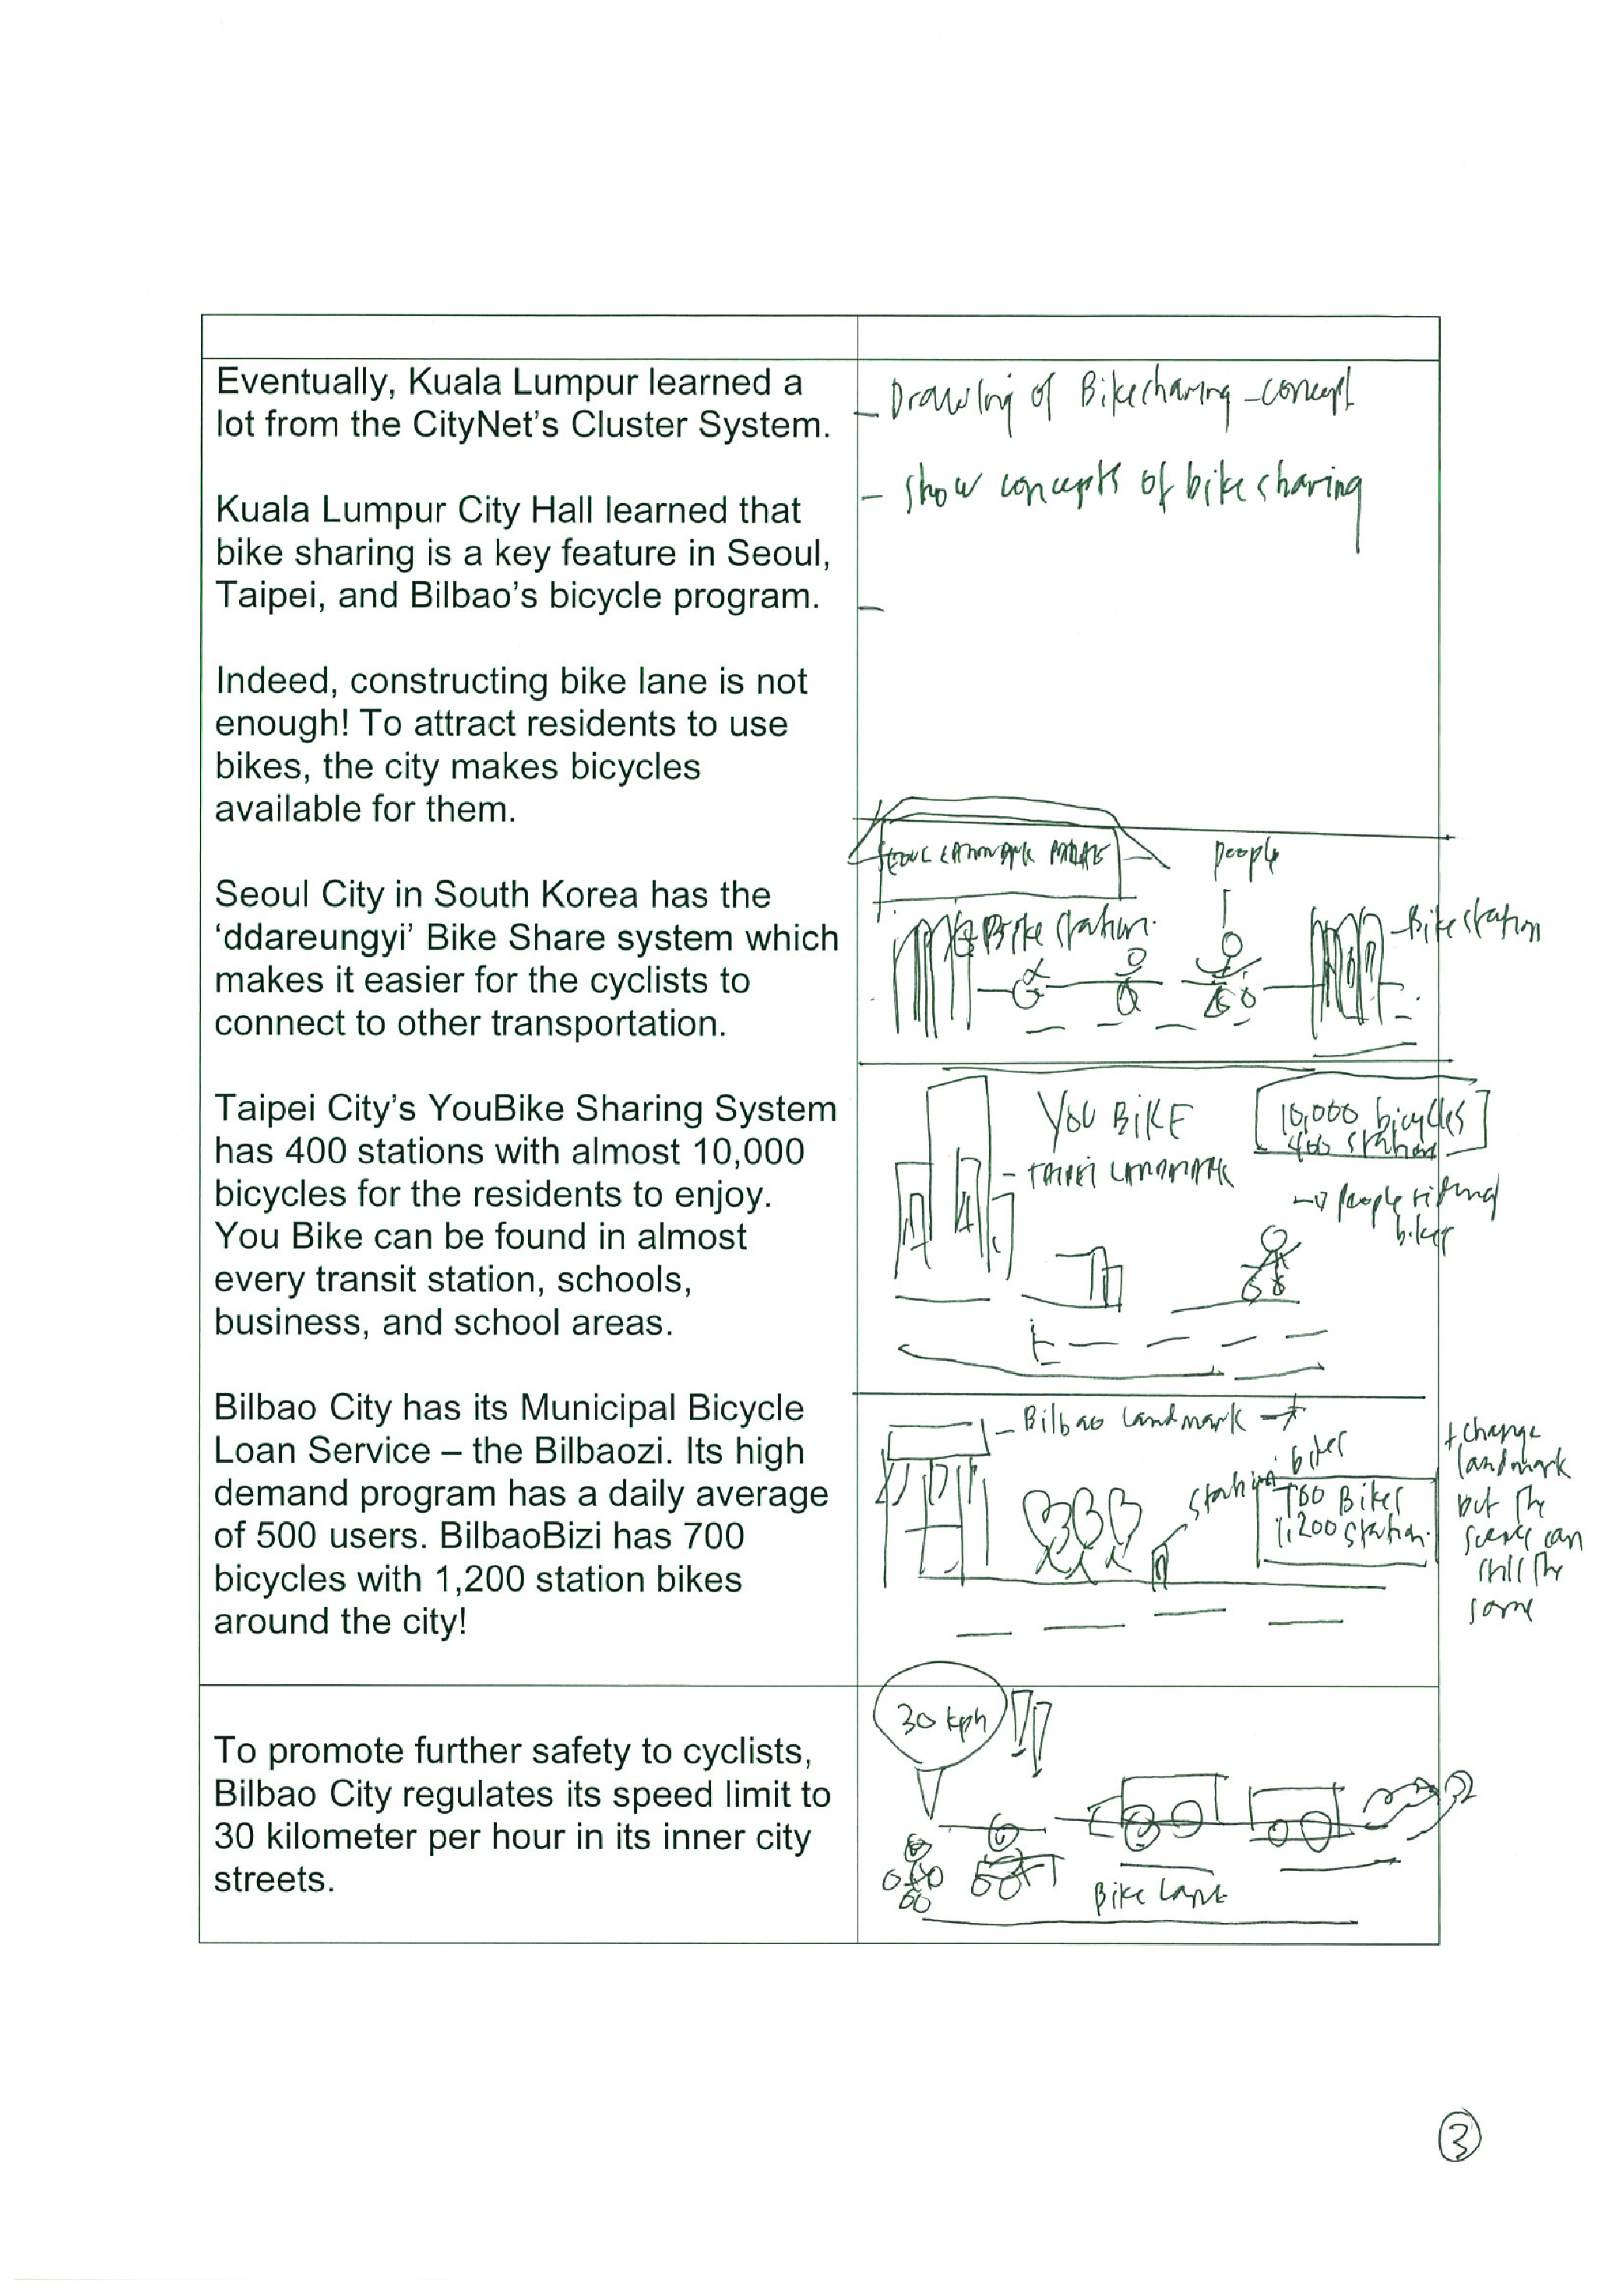 Eventually, Kuala Lumpur learned a
lot from the CityNet's Cluster System.
Kuala Lumpur City Hall learned that
bike sharing is a key feature in Seoul,
Taipei, and Bilbao's bicycle program.
Indeed, constructing bike lane is not
enough! To attract residents to use
bikes, the city makes bicycles
available for them.
Seoul City in South Korea has the
‘ddareungyi’ Bike Share system which
makes it easier for the cyclists to
connect to other transportation.
Taipei City's YouBike Sharing System
has 400 stations with almost 10,000
bicycles for the residents to enjoy.
You Bike can be found in almost
every transit station, schools,
business, and school areas.
Bilbao City has its Municipal Bicycle
Loan Service – the Bilbaozi. Its high
demand program has a daily average
of 500 users. BilbaoBizi has 700
bicycles with 1,200 station bikes
around the city!
To promote further safety to cyclists,
Bilbao City regulates its speed limit to
30 kilometer per hour in its inner city
streets.
- Drawing of Bikesharing - concept
- show concepts of bike sharing
-
people
Bike station.
- Bike station
YOU BIKE
10,000 bicycles
400 station
- TAIPEI LANDMARK
people riding
bikes
- Bilbao Landmark
station bikes
700 Bikes
1,200 station.
+ change
landmark
but the
scenes can
still the
same
30 kph !!
Bike Lane
3